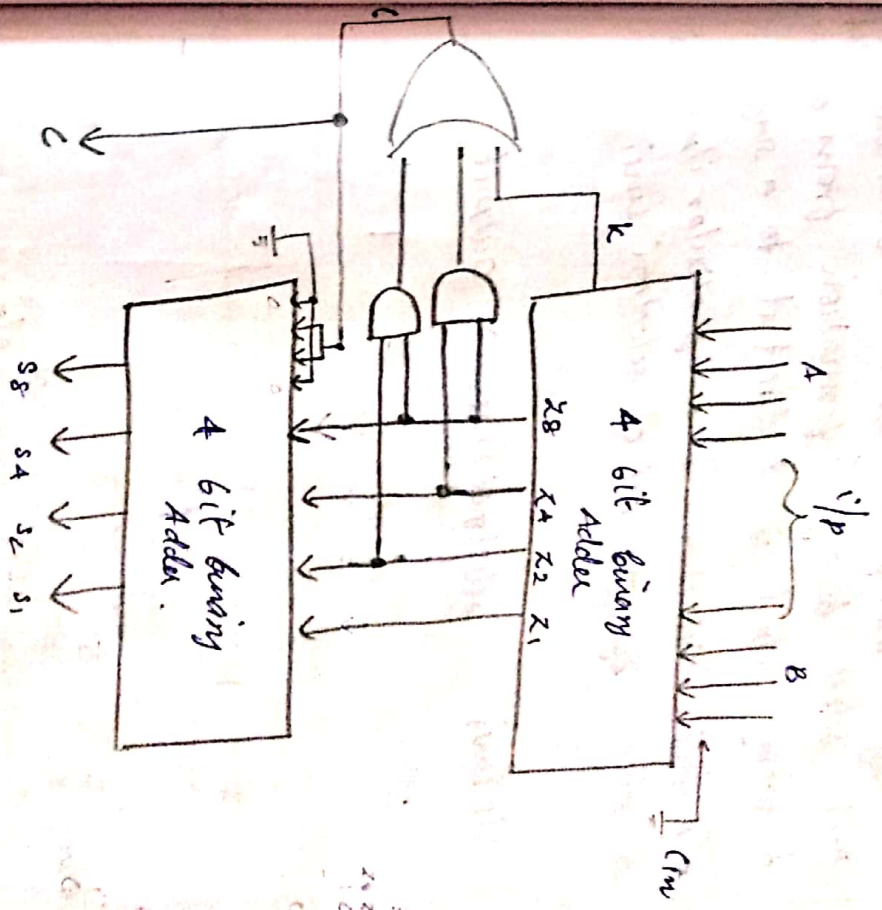 i/p
A
B
Cin
K
4 bit binary
Adder
Z8 Z4 Z2 Z1
C
C
4 bit binary
Adder.
S8 S4 S2 S1